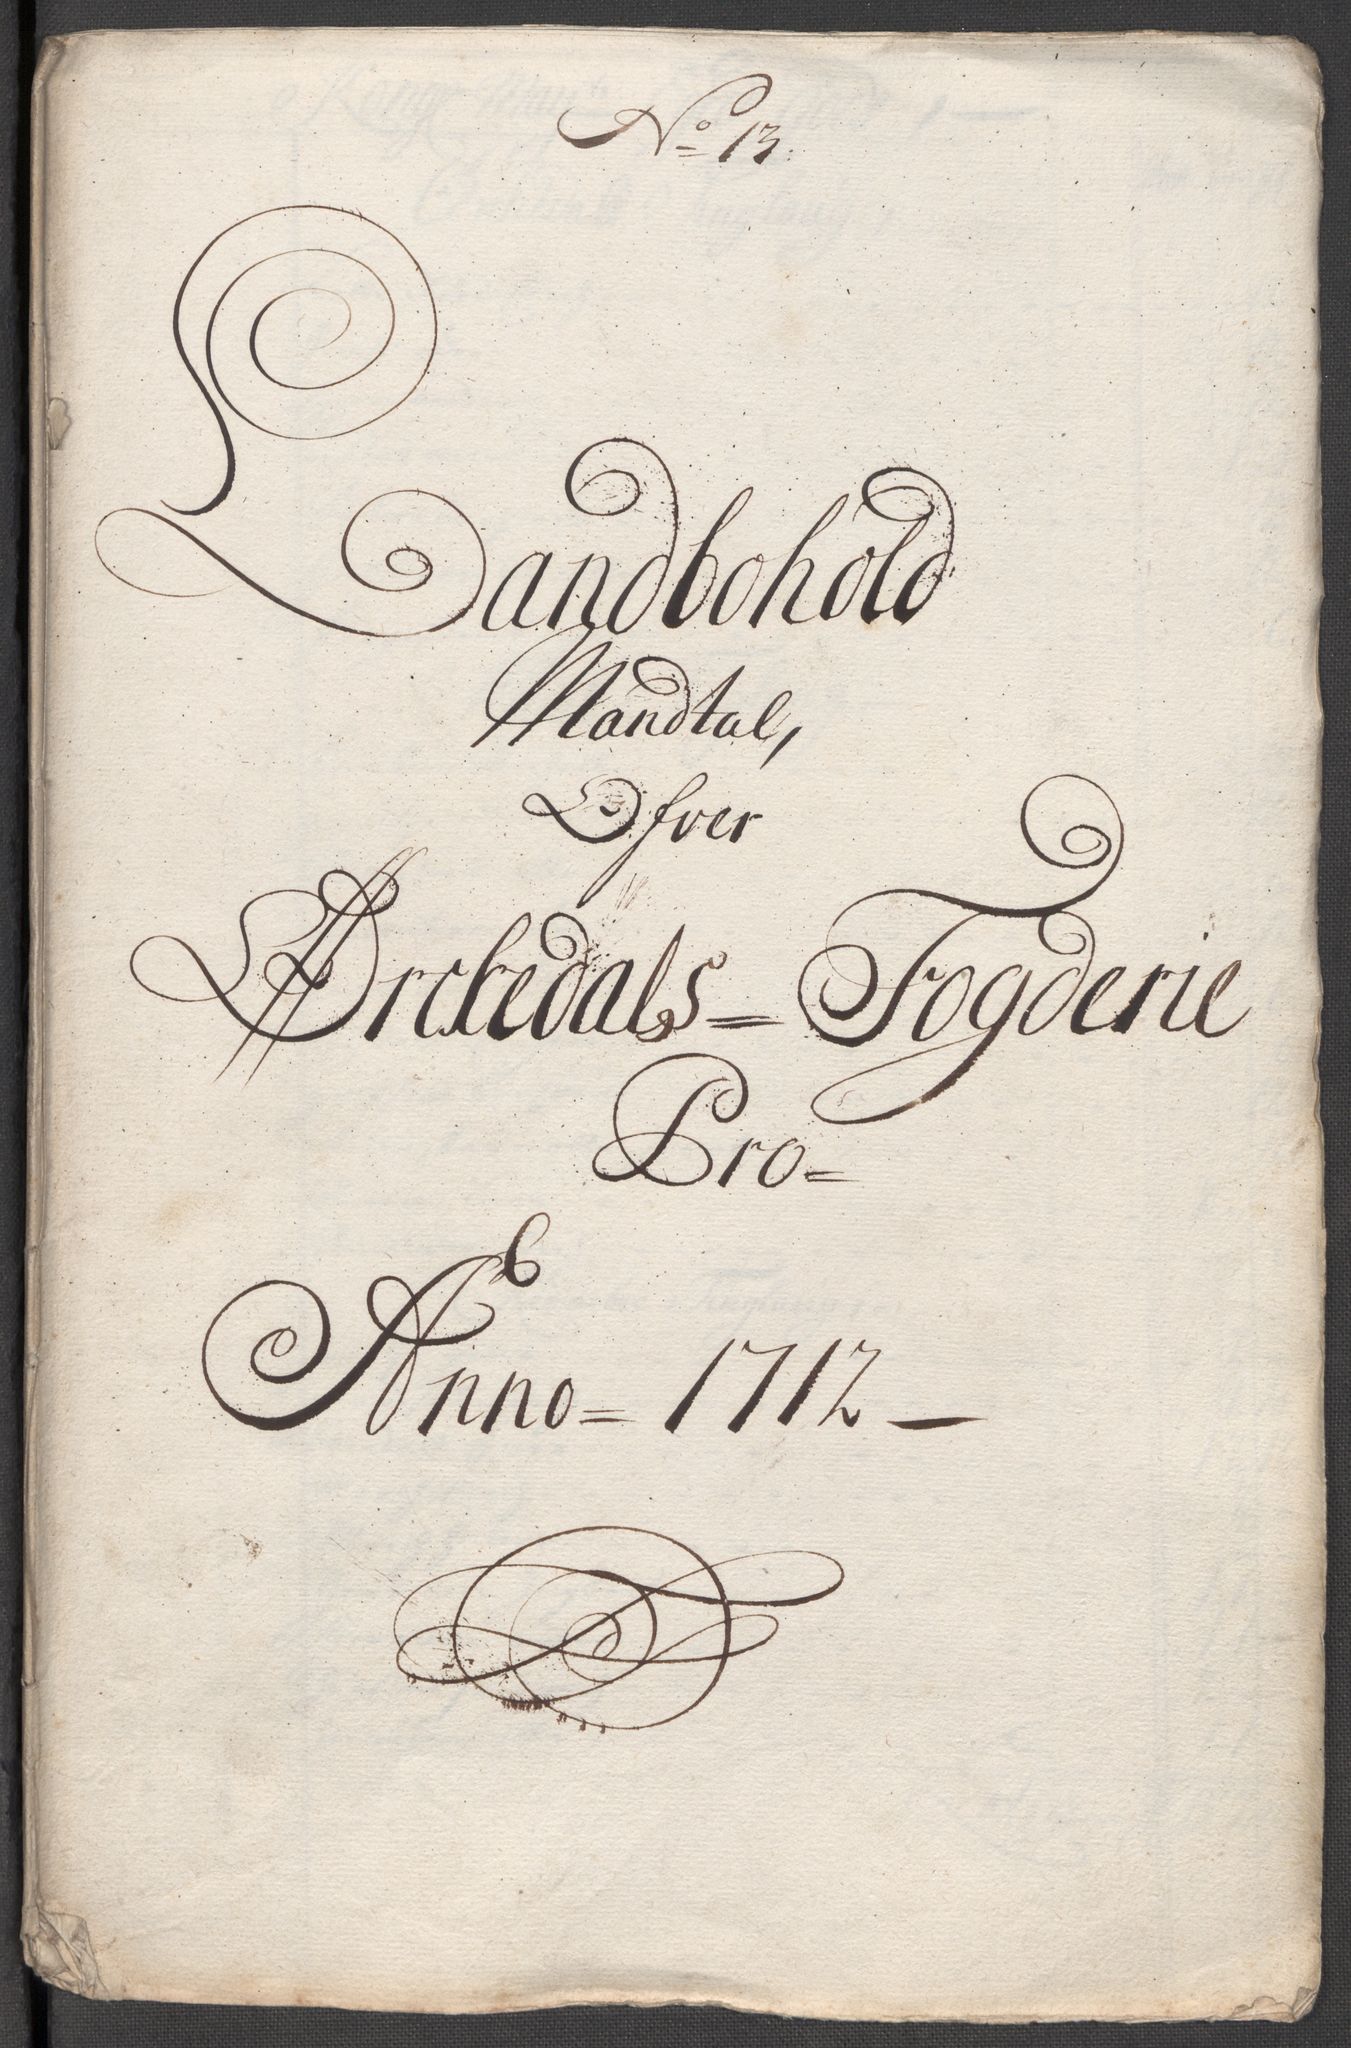 No 13.
Landbohold
Mandtal,
Ofver
Ørckedals = Fogderie
Pro =
Anno = 1712 —